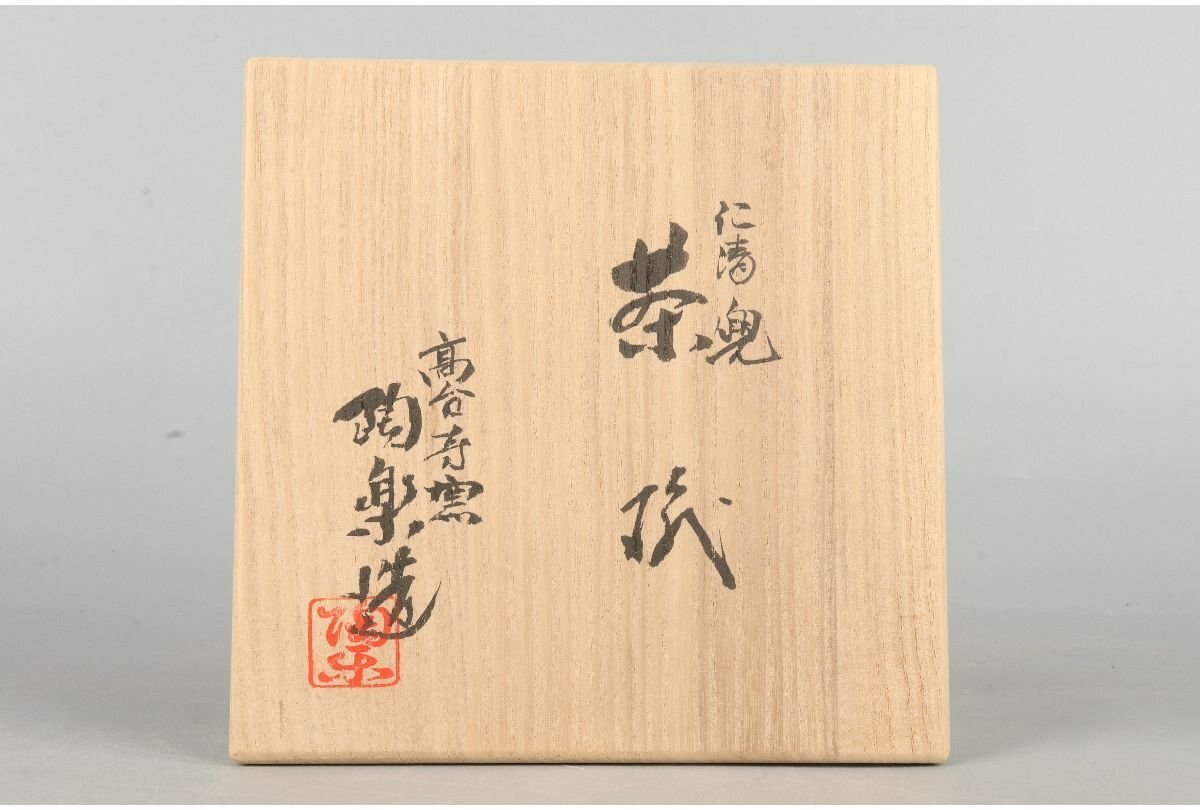 仁清兜
茶碗
高台寺窯
陶楽造
陶楽